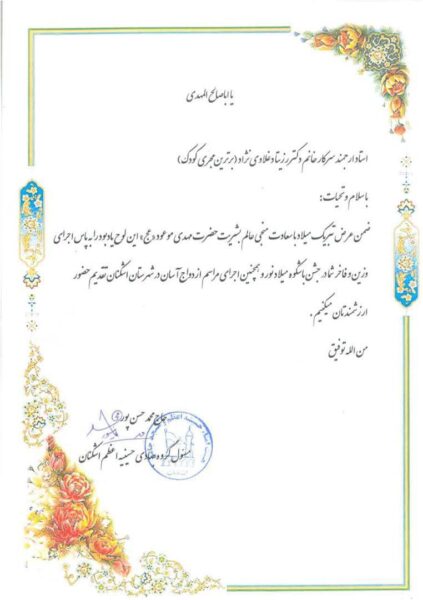 یا اباصالح المهدی
استاد ارجمند سرکار خانم دکتر رزیتا دغلاوی نژاد (برترین مجری کودک)
باسلام و تحیات:
ضمن عرض تبریک میلاد باسعادت منجی عالم بشریت حضرت مهدی موعود «عج» این لوح یادبود را به پاس اجرای
وزین و فاخر شما در جشن باشکوه میلاد نور و همچنین اجرای مراسم ازدواج آسان در شهرستان اشکنان تقدیم حضور
ارزشمندتان میکنیم.
من الله توفیق
حاج محمد حسن پور
مسئول گروه جهادی حسینیه اعظم اشکنان